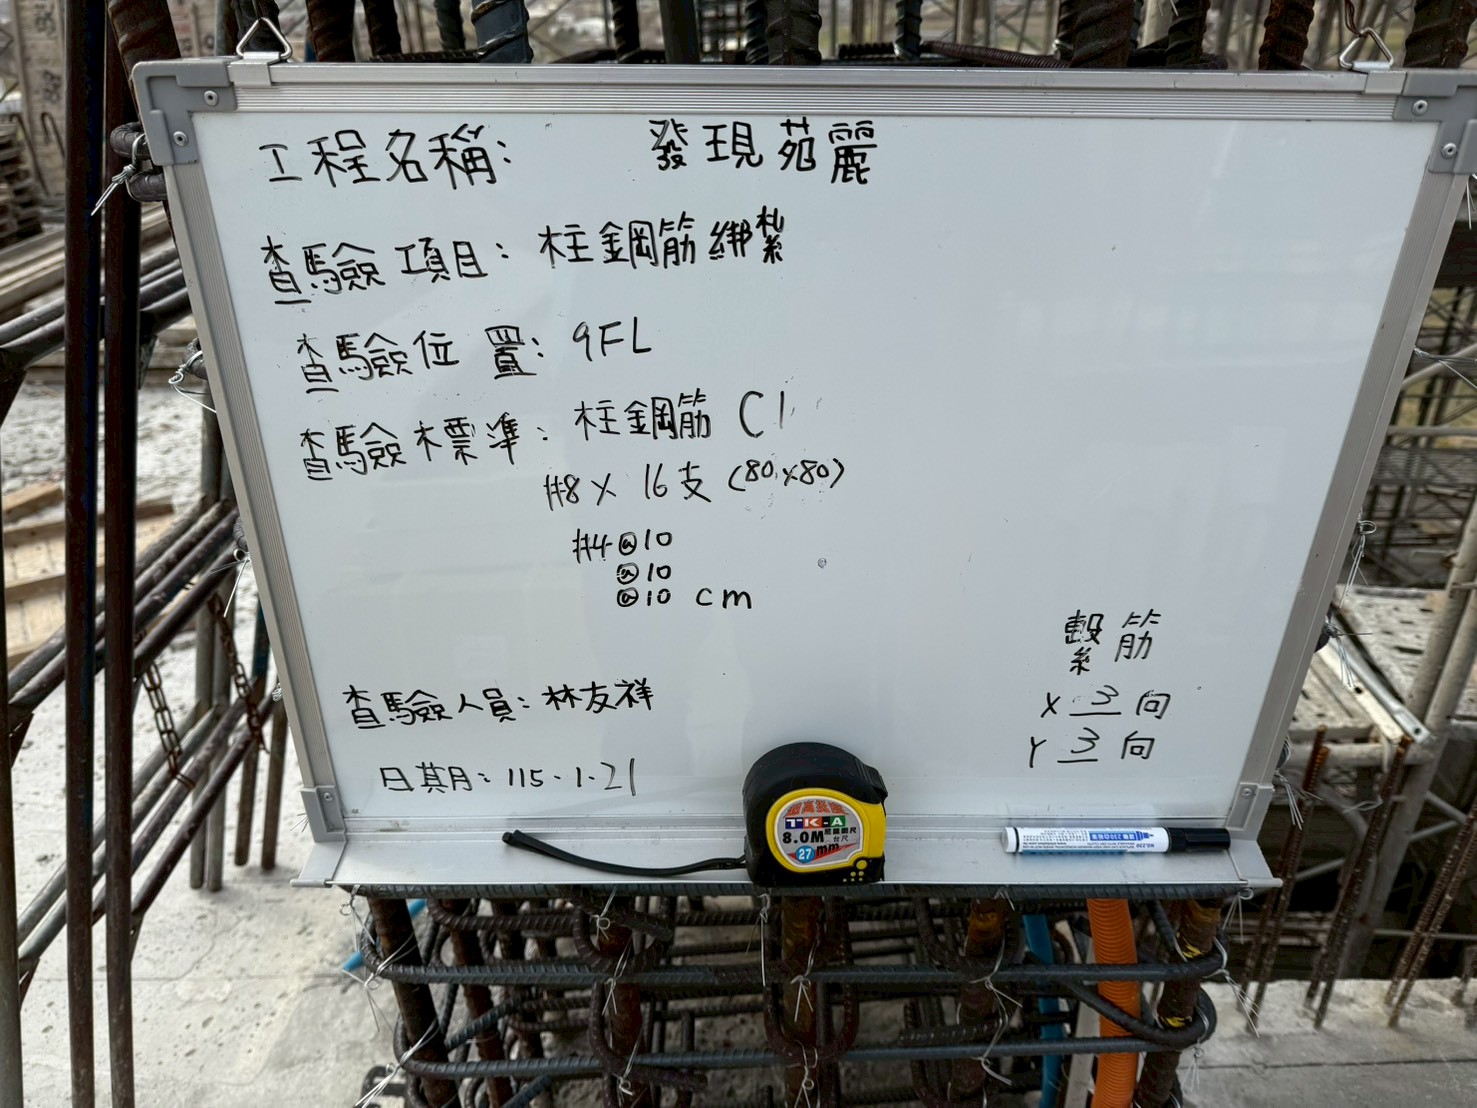 工程名稱: 發現苑麗
查驗項目: 柱鋼筋綁紮
查驗位置: 9FL
查驗標準: 柱鋼筋 C1
#8 X 16支 (80x80)
#4@10
@10
@10 cm
繫筋
X 3 向
Y 3 向
查驗人員: 林友祥
日期: 115.1.21
TK-A
8.0M
27mm